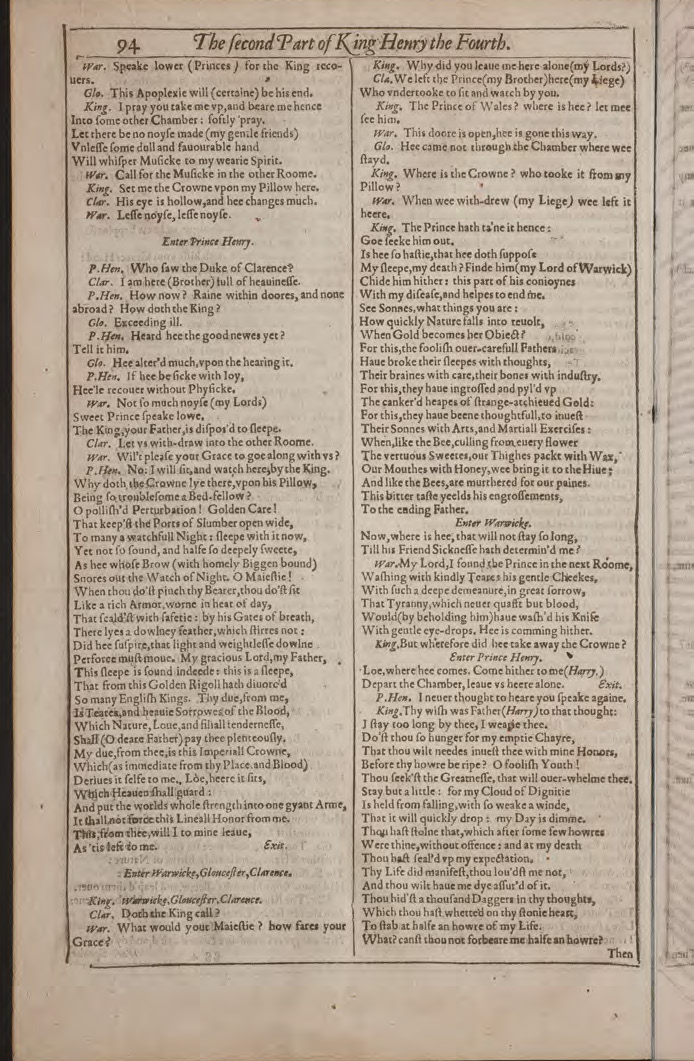 94 The ſecond Part of King Henry the Fourth.
War. Speake lower (Princes) for the King reco-
uers.
Glo. This Apoplexie will (certaine) be his end.
King. I pray you take me vp, and beare me hence
Into ſome other Chamber: ſoftly 'pray.
Let there be no noyſe made (my gentle friends)
Vnleſſe ſome dull and fauourable hand
Will whiſper Muſicke to my wearie Spirit.
War. Call for the Muſicke in the other Roome.
King. Set me the Crowne vpon my Pillow here.
Clar. His eye is hollow, and hee changes much.
War. Leſſe noyſe, leſſe noyſe.
Enter Prince Henry.
P.Hen. Who ſaw the Duke of Clarence?
Clar. I am here (Brother) full of heauineſſe.
P.Hen. How now? Raine within doores, and none
abroad? How doth the King?
Glo. Exceeding ill.
P.Hen. Heard hee the good newes yet?
Tell it him.
Glo. Hee alter'd much, vpon the hearing it.
P.Hen. If hee be ſicke with Ioy,
Hee'le recouer without Phyſicke.
War. Not ſo much noyſe (my Lords)
Sweet Prince ſpeake lowe,
The King, your Father, is diſpos'd to ſleepe.
Clar. Let vs with-draw into the other Roome.
War. Wil't pleaſe your Grace to goe along with vs?
P.Hen. No: I will ſit, and watch here, by the King.
Why doth the Crowne lye there, vpon his Pillow,
Being ſo troubleſome a Bed-fellow?
O polliſh'd Perturbation! Golden Care!
That keep'ſt the Ports of Slumber open wide,
To many a watchfull Night: ſleepe with it now,
Yet not ſo ſound, and halfe ſo deepely ſweete,
As hee whoſe Brow (with homely Biggen bound)
Snores out the Watch of Night. O Maieſtie!
When thou do'ſt pinch thy Bearer, thou do'ſt ſit
Like a rich Armor, worne in heat of day,
That ſcald'ſt with ſafetie: by his Gates of breath,
There lyes a dowlney feather, which ſtirres not:
Did hee ſuſpire, that light and weightleſſe dowlne
Perforce muſt moue. My gracious Lord, my Father,
This ſleepe is ſound indeede: this is a ſleepe,
That from this Golden Rigoll hath diuorc'd
So many Engliſh Kings. Thy due, from me,
Is Teares, and heauie Sorrowes of the Blood,
Which Nature, Loue, and filiall tenderneſſe,
Shall (O deare Father) pay thee plenteouſly.
My due, from thee, is this Imperiall Crowne,
Which (as immediate from thy Place, and Blood)
Deriues it ſelfe to me. Loe, heere it ſits,
Which Heauen ſhall guard:
And put the worlds whole ſtrength into one gyant Arme,
It ſhall not force this Lineall Honor from me.
This, from thee, will I to mine leaue,
As 'tis left to me. Exit.
Enter Warwicke, Glouceſter, Clarence.
King. Warwicke, Glouceſter, Clarence.
Clar. Doth the King call?
War. What would your Maieſtie? how fares your
Grace?
King. Why did you leaue me here alone (my Lords?)
Cla. We left the Prince (my Brother) here (my Liege)
Who vndertooke to ſit and watch by you.
King. The Prince of Wales? where is hee? let mee
ſee him.
War. This doore is open, hee is gone this way.
Glo. Hee came not through the Chamber where wee
ſtayd.
King. Where is the Crowne? who tooke it from my
Pillow?
War. When wee with-drew (my Liege) wee left it
heere.
King. The Prince hath ta'ne it hence:
Goe ſeeke him out.
Is hee ſo haſtie, that hee doth ſuppoſe
My ſleepe, my death? Finde him (my Lord of Warwick)
Chide him hither: this part of his conioynes
With my diſeaſe, and helpes to end me.
See Sonnes, what things you are:
How quickly Nature falls into reuolt,
When Gold becomes her Obiect?
For this, the fooliſh ouer-carefull Fathers
Haue broke their ſleepes with thoughts,
Their braines with care, their bones with induſtry.
For this, they haue ingroſſed and pyl'd vp
The canker'd heapes of ſtrange-atchieued Gold:
For this, they haue beene thoughtfull, to inueſt
Their Sonnes with Arts, and Martiall Exerciſes:
When, like the Bee, culling from euery flower
The vertuous Sweetes, our Thighes packt with Wax,
Our Mouthes with Honey, wee bring it to the Hiue;
And like the Bees, are murthered for our paines.
This bitter taſte yeelds his engroſſements,
To the ending Father.
Enter Warwicke.
Now, where is hee, that will not ſtay ſo long,
Till his Friend Sickneſſe hath determin'd me?
War. My Lord, I found the Prince in the next Roome,
Waſhing with kindly Teares his gentle Cheekes,
With ſuch a deepe demeanure, in great ſorrow,
That Tyranny, which neuer quafft but blood,
Would (by beholding him) haue waſh'd his Knife
With gentle eye-drops. Hee is comming hither.
King. But wherefore did hee take away the Crowne?
Enter Prince Henry.
Loe, where hee comes. Come hither to me (Harry.)
Depart the Chamber, leaue vs heere alone. Exit.
P.Hen. I neuer thought to heare you ſpeake againe.
King. Thy wiſh was Father (Harry) to that thought:
I ſtay too long by thee, I wearie thee.
Do'ſt thou ſo hunger for my emptie Chayre,
That thou wilt needes inueſt thee with mine Honors,
Before thy howre be ripe? O fooliſh Youth!
Thou ſeek'ſt the Greatneſſe, that will ouer-whelme thee.
Stay but a little: for my Cloud of Dignitie
Is held from falling, with ſo weake a winde,
That it will quickly drop: my Day is dimme.
Thou haſt ſtolne that, which after ſome few howres
Were thine, without offence: and at my death
Thou haſt ſeal'd vp my expectation.
Thy Life did manifeſt, thou lou'dſt me not,
And thou wilt haue me dye aſſur'd of it.
Thou hid'ſt a thouſand Daggers in thy thoughts,
Which thou haſt whetted on thy ſtonie heart,
To ſtab at halfe an howre of my Life.
What? canſt thou not forbeare me halfe an howre?
Then